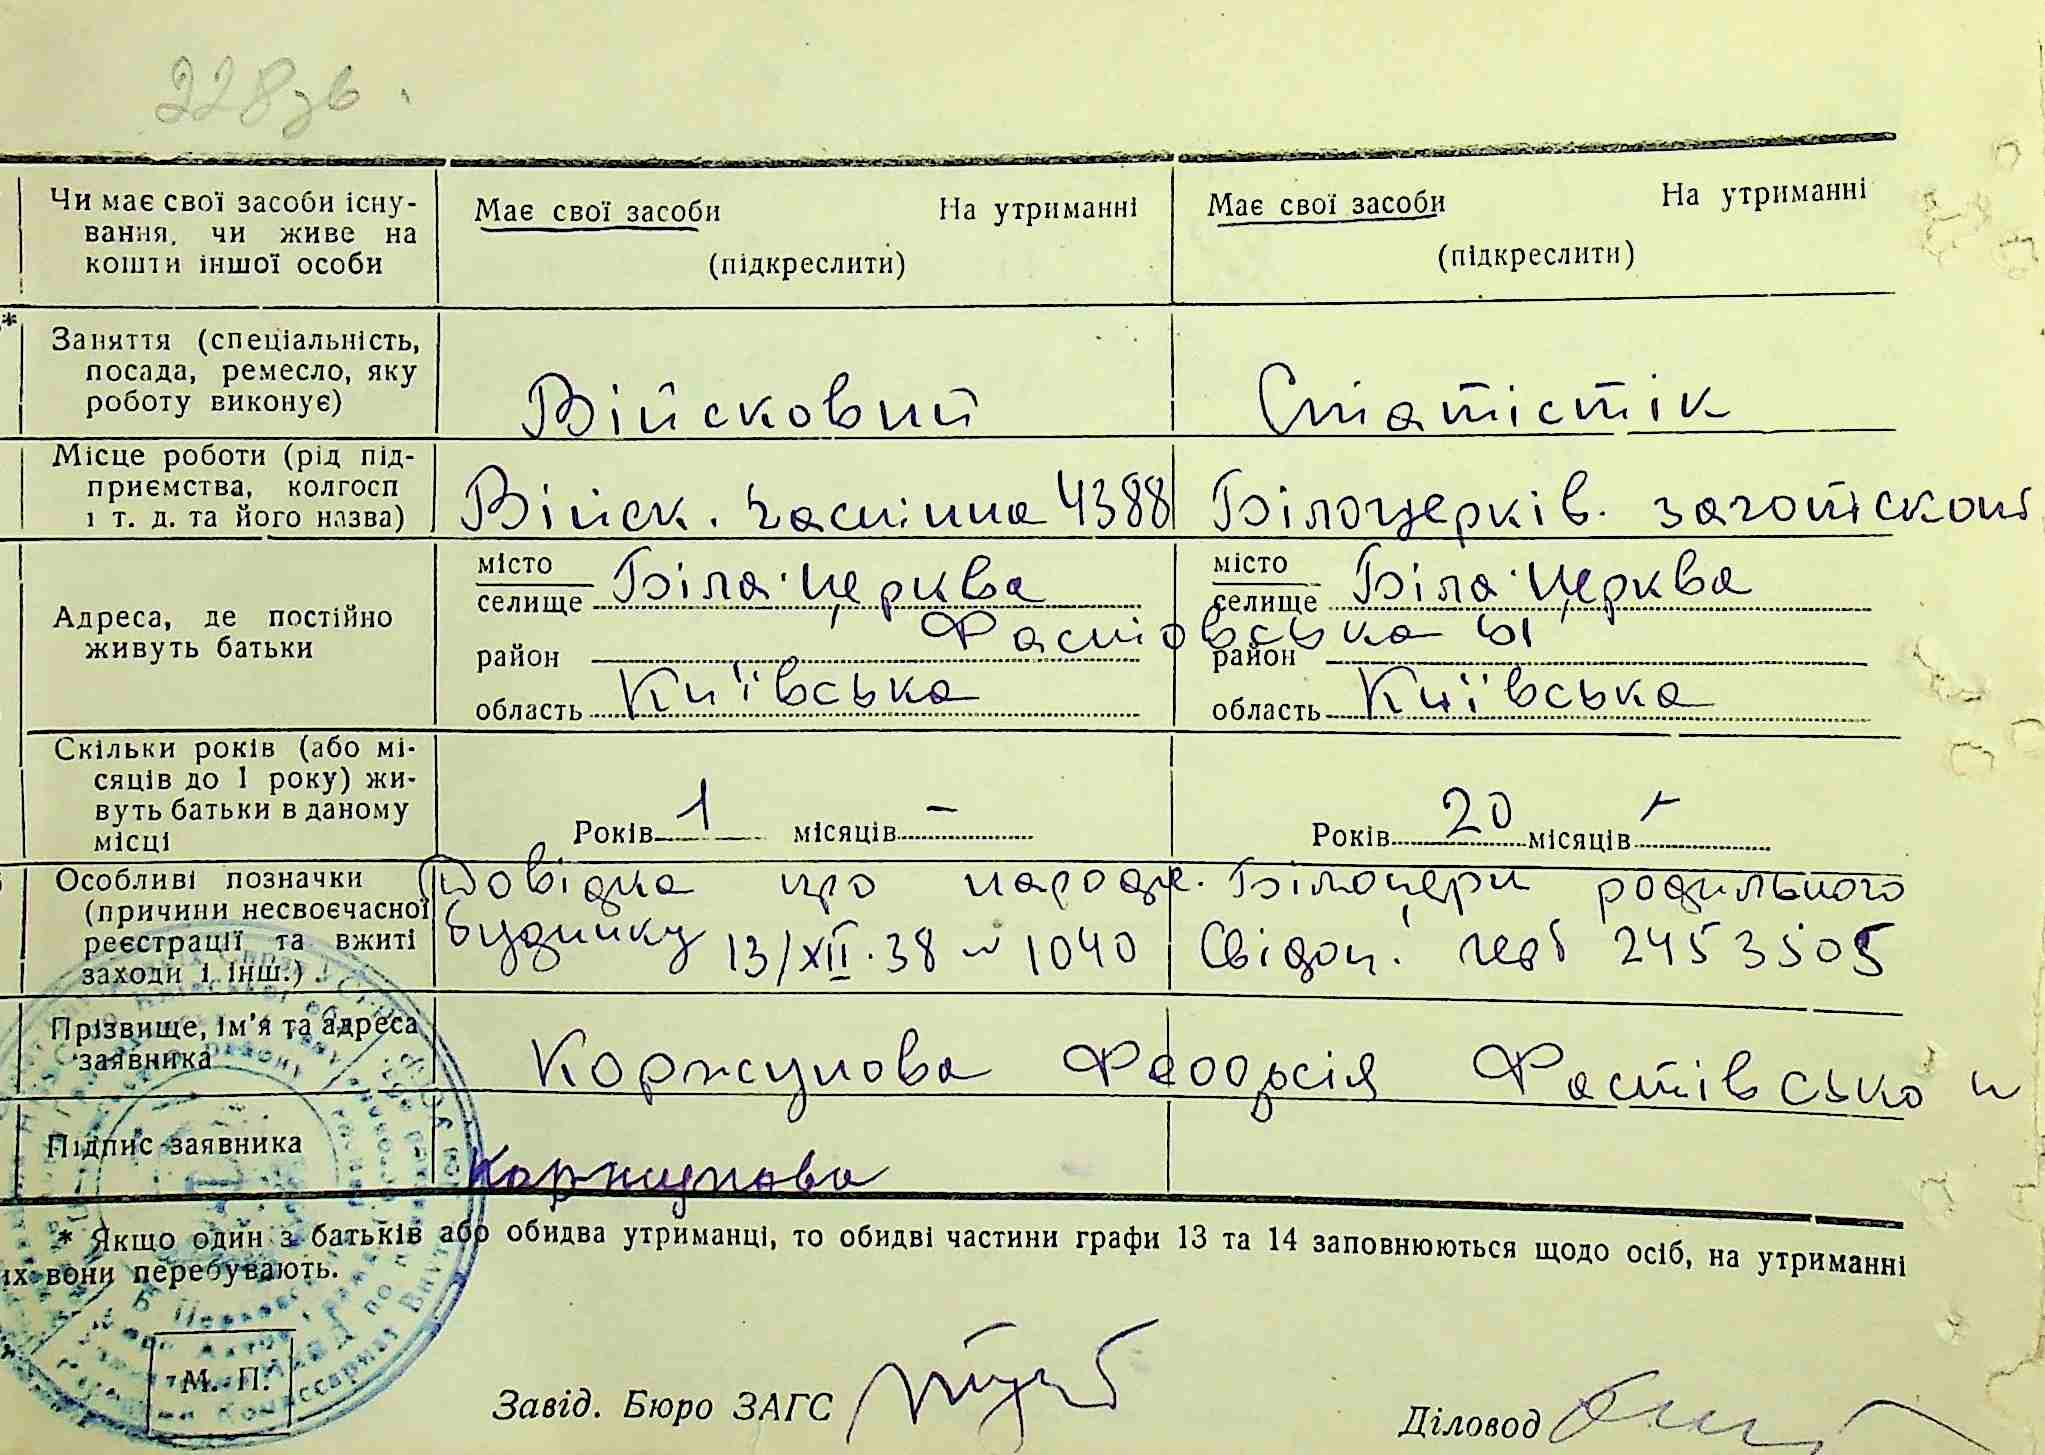 228 зв.
Чи має свої засоби існу-
вання, чи живе на
кошти іншої особи
Має свої засоби На утриманні
(підкреслити)
Має свої засоби На утриманні
(підкреслити)
*
Заняття (спеціальність,
посада, ремесло, яку
роботу виконує)
Військовий
Статістік
Місце роботи (рід під-
приємства, колгосп
і т. д. та його назва)
Війск. частина 4388
Білоцерків. заготскот
Адреса, де постійно
живуть батьки
місто
селище Біла-Церква
район
область Київська
місто
селище Біла-Церква
Фастівська 61
район
область Київська
Скільки років (або мі-
сяців до 1 року) жи-
вуть батьки в даному
місці
Років 1 місяців –
Років 20 місяців –
Особливі позначки
(причини несвоєчасної
реєстрації та вжиті
заходи і інш.)
Довідка про народж. Білоцерк родильного
будинку 13/XII.38 № 1040 Свідоц. 2453505
Прізвище, ім'я та адреса
заявника
Коржунова Феодосія Фастівсько
Підпис заявника
Коржунова
* Якщо один з батьків або обидва утриманці, то обидві частини графи 13 та 14 заповнюються щодо осіб, на утриманні
их вони перебувають.
М. П.
Завід. Бюро ЗАГС
Діловод